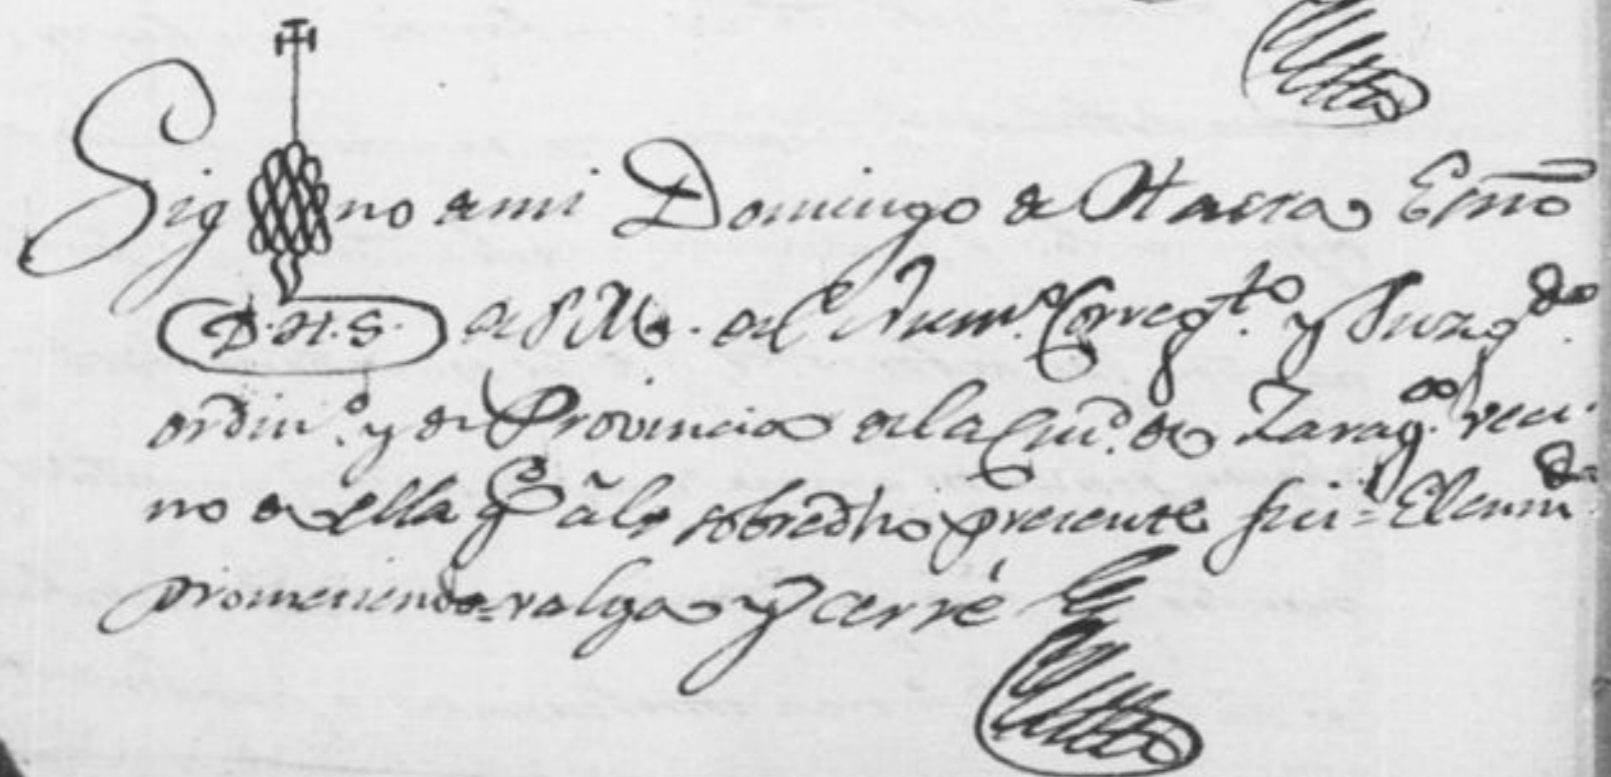 Sig no de mi Domingo de Ota Essno
D. H. S. de S. M. del Num.º Corregt.º y Juzgdo
ordin.º y de Provincia de la Ciud. de Zarag.ª veci
no de ella q.e a lo sobredho presente fui = El enmdo
prometiendo = valga y cerré